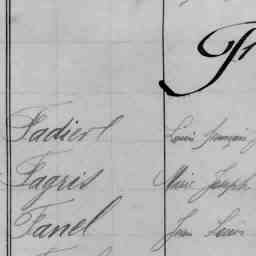 Fr
Fadierl Louis françois
Fagris Marie Joseph
Fanel Jean Louis